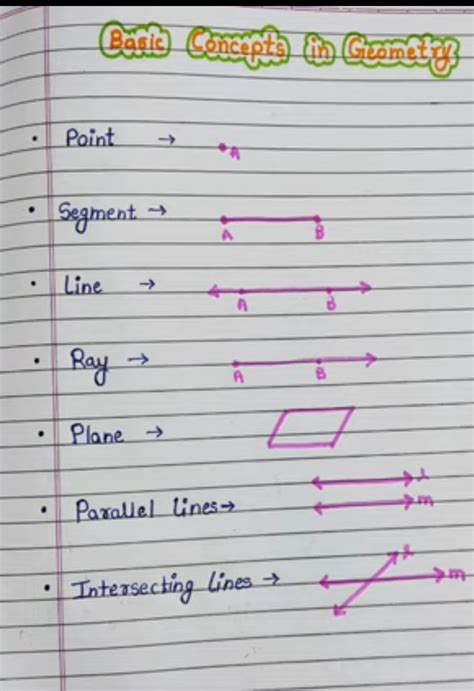 Basic Concepts in Geometry
• Point →
A
• Segment →
A B
• Line →
A B
• Ray →
A B
• Plane →
• Parallel lines →
l
m
• Intersecting lines →
l
m